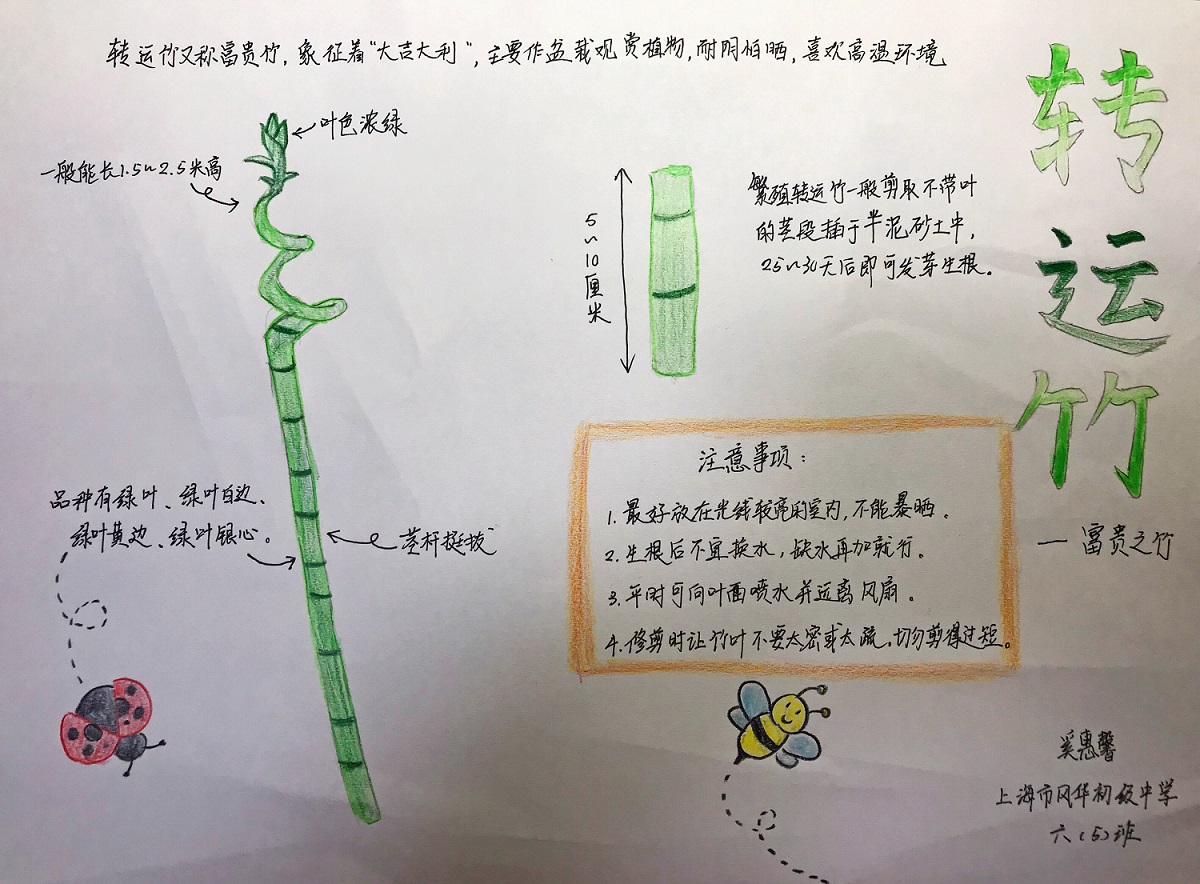 转运竹又称富贵竹，象征着“大吉大利”，主要作盆栽观赏植物，耐阴怕晒，喜欢高温环境
转运竹
—富贵之竹
叶色浓绿
一般能长1.5~2.5米高
5~10厘米
繁殖转运竹一般剪取不带叶
的茎段插于半泥砂土中，
25~30天后即可发芽生根。
品种有绿叶、绿叶白边、
绿叶黄边、绿叶银心。
茎杆挺拔
注意事项：
1.最好放在光线较亮的室内，不能暴晒。
2.生根后不宜换水，缺水再加就行。
3.平时可向叶面喷水并远离风扇。
4.修剪时让竹叶不要太密或太疏，切勿剪得过短。
奚惠馨
上海市风华初级中学
六（5）班